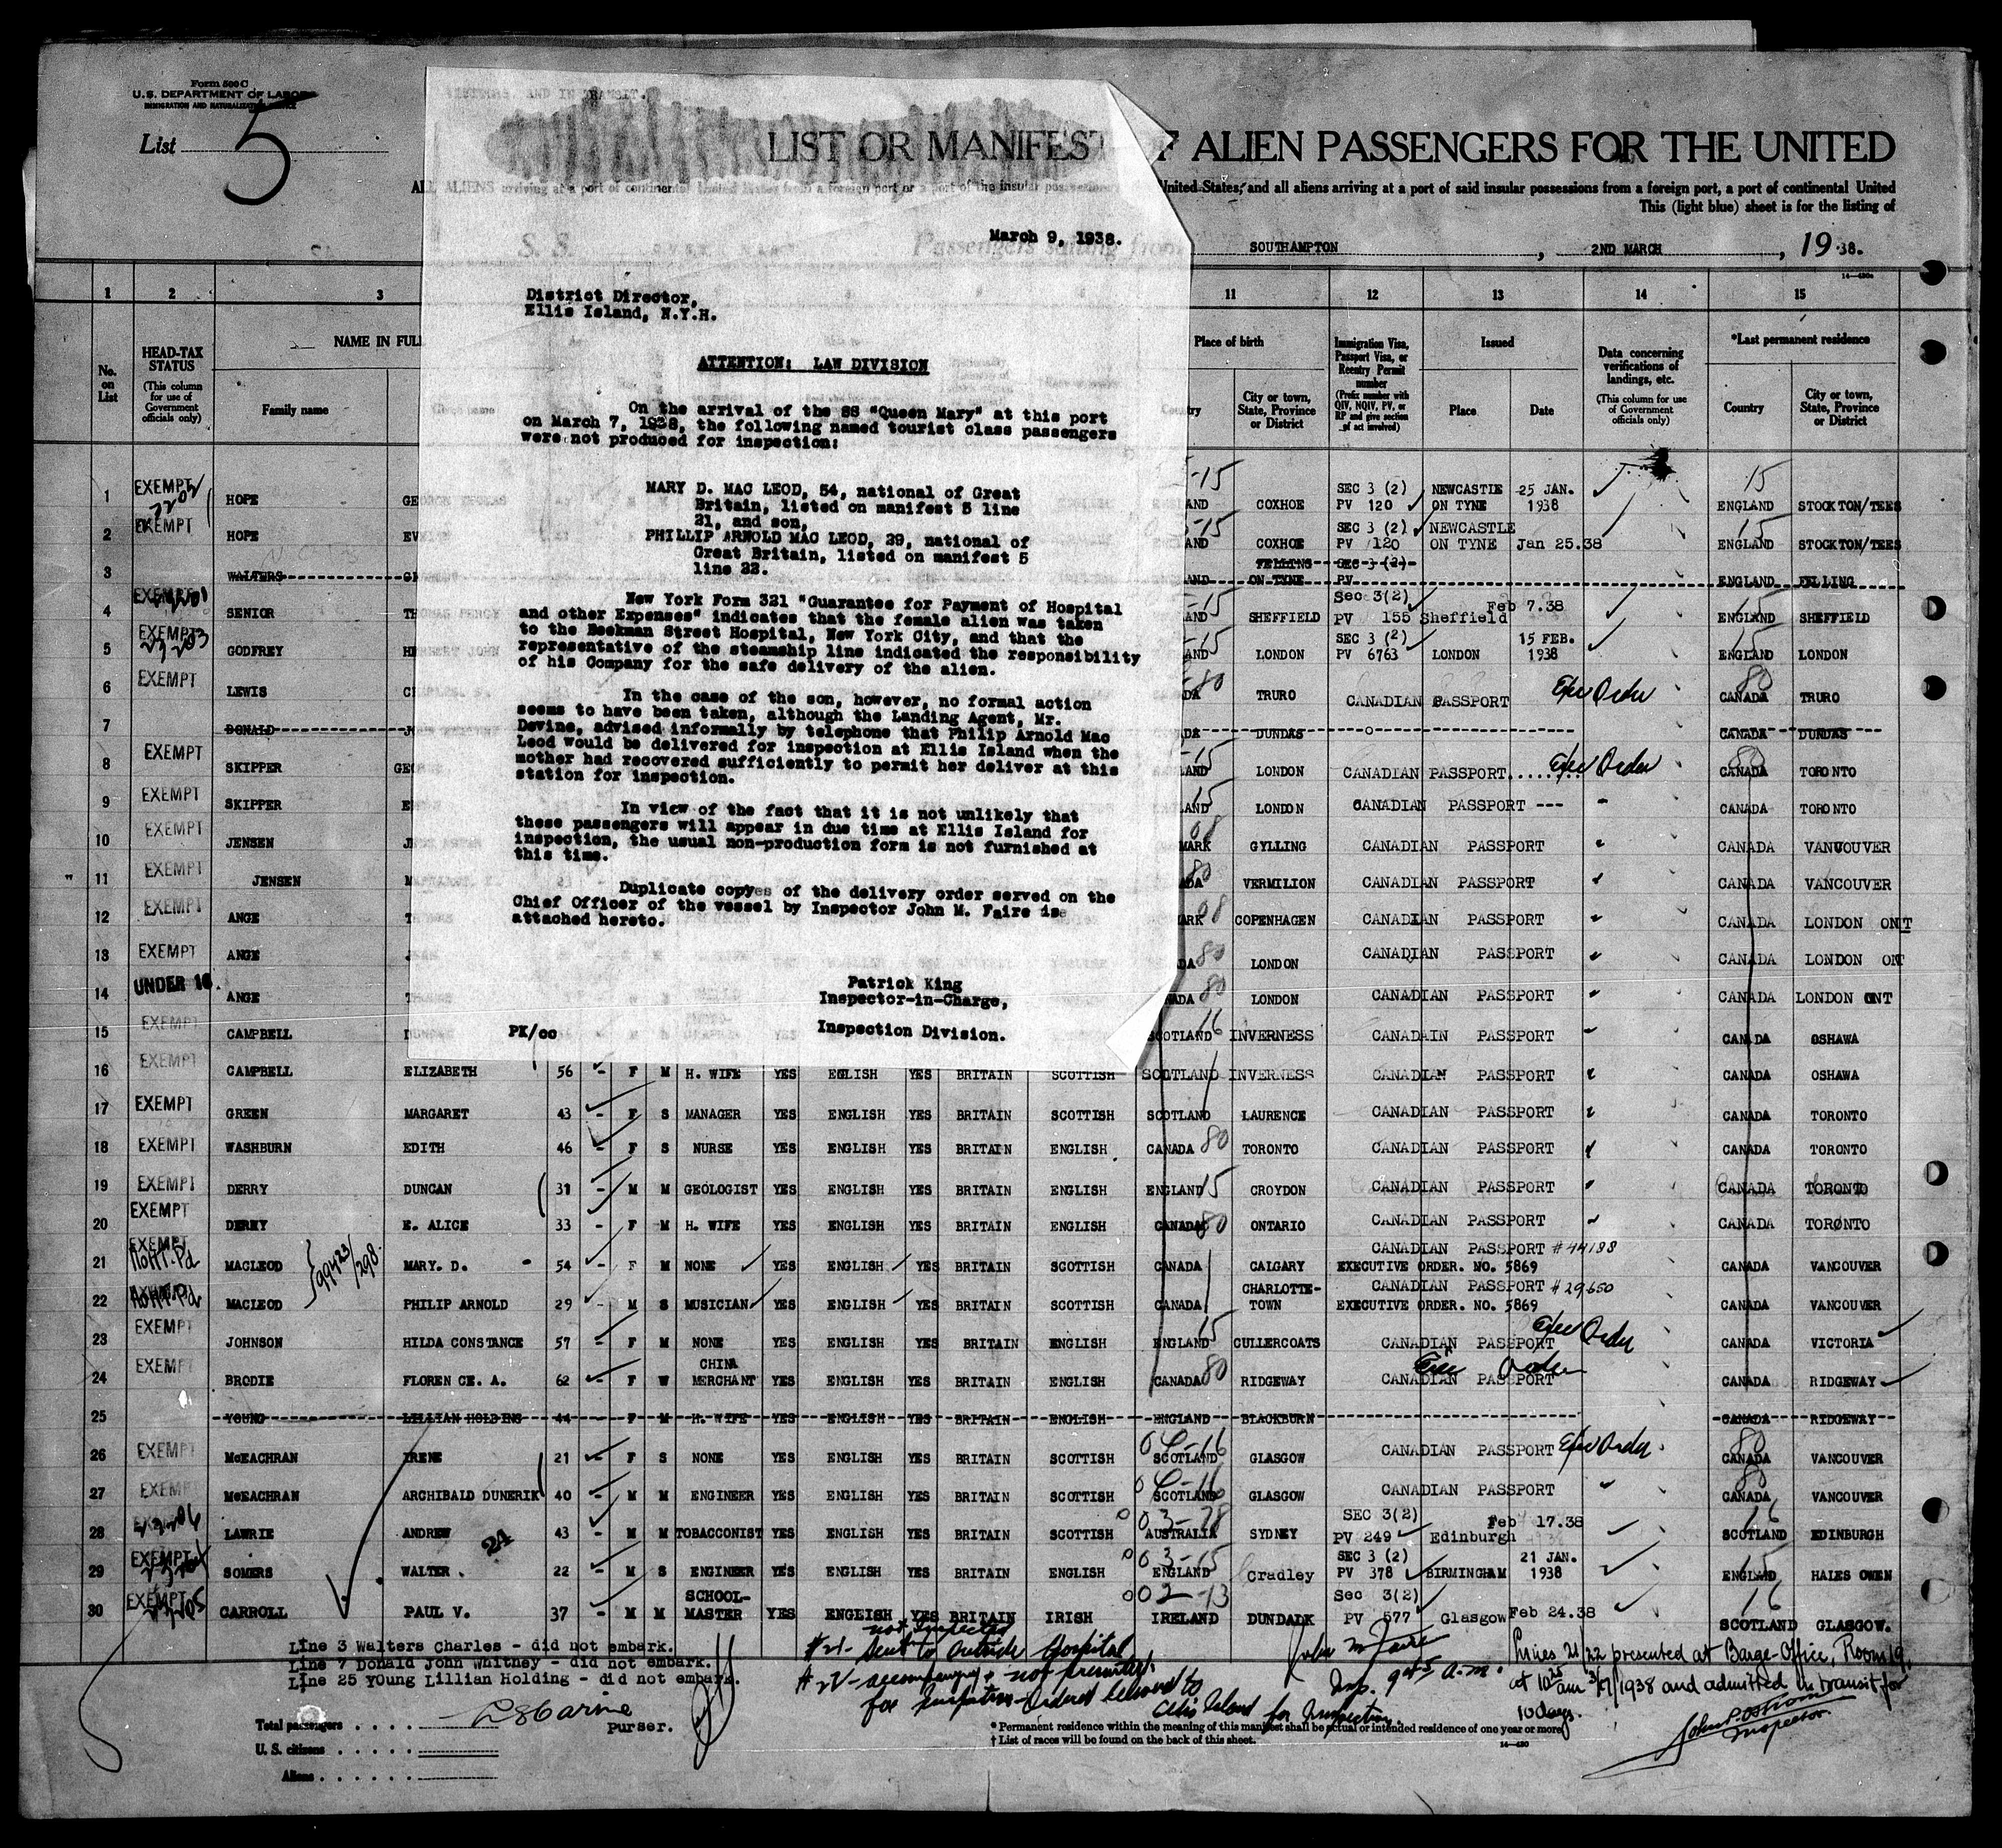 Form 500 C
U.S. DEPARTMENT OF LABOR
IMMIGRATION AND NATURALIZATION SERVICE
List 5
LIST OR MANIFEST OF ALIEN PASSENGERS FOR THE UNITED
ALL ALIENS arriving at a port of continental United States from a foreign port or a port of the insular possessions United States, and all aliens arriving at a port of said insular possessions from a foreign port, a port of continental United
This (light blue) sheet is for the listing of
S. S. Passengers sailing from SOUTHAMPTON, 2ND MARCH, 1938.
March 9, 1938.
District Director,
Ellis Island, N.Y.H.
ATTENTION: LAW DIVISION
On the arrival of the SS "Queen Mary" at this port
on March 7, 1938, the following named tourist class passengers
were not produced for inspection:
MARY D. MAC LEOD, 54, national of Great
Britain, listed on manifest 5 line
21, and son,
PHILLIP ARNOLD MAC LEOD, 29, national of
Great Britain, listed on manifest 5
line 22.
New York Form 321 "Guarantee for Payment of Hospital
and other Expenses" indicates that the female alien was taken
to the Beekman Street Hospital, New York City, and that the
representative of the steamship line indicated the responsibility
of his Company for the safe delivery of the alien.
In the case of the son, however, no formal action
seems to have been taken, although the Landing Agent, Mr.
Devine, advised informally by telephone that Philip Arnold Mac
Leod would be delivered for inspection at Ellis Island when the
mother had recovered sufficiently to permit her deliver at this
station for inspection.
In view of the fact that it is not unlikely that
these passengers will appear in due time at Ellis Island for
inspection, the usual non-production form is not furnished at
this time.
Duplicate copyes of the delivery order served on the
Chief Officer of the vessel by Inspector John M. Faire is
attached hereto.
Patrick King
Inspector-in-Charge,
Inspection Division.
PK/cc
1 2 3 11 12 13 14 15
No. on List
HEAD-TAX STATUS (This column for use of Government officials only)
NAME IN FULL
Family name
Place of birth
City or town, State, Province or District
Immigration Visa, Passport Visa, or Reentry Permit number (Prefix number with QIV, NQIV, PV, or RP and give section of act involved)
Issued
Place Date
Data concerning verifications of landings, etc. (This column for use of Government officials only)
*Last permanent residence
Country
City or town, State, Province or District
1 EXEMPT HOPE COXHOE SEC 3 (2) PV 120 NEWCASTLE ON TYNE 25 JAN. 1938 ENGLAND STOCKTON/TEES
2 EXEMPT HOPE COXHOE SEC 3 (2) PV 120 NEWCASTLE ON TYNE Jan 25.38 ENGLAND STOCKTON/TEES
3 WALTERS FELLING ON TYNE SEC 3 (2) PV ENGLAND FELLING
4 EXEMPT SENIOR THOMAS PERCY SHEFFIELD Sec 3(2) PV 155 Sheffield Feb 7.38 ENGLAND SHEFFIELD
5 EXEMPT GODFREY HERBERT JOHN LONDON SEC 3 (2) PV 6763 LONDON 15 FEB. 1938 ENGLAND LONDON
6 EXEMPT LEWIS TRURO CANADIAN PASSPORT Exec Order CANADA TRURO
7 DONALD DUNDAS CANADA DUNDAS
8 EXEMPT SKIPPER LONDON CANADIAN PASSPORT Exec Order CANADA TORONTO
9 EXEMPT SKIPPER LONDON CANADIAN PASSPORT --- CANADA TORONTO
10 EXEMPT JENSEN GYLLING CANADIAN PASSPORT CANADA VANCOUVER
" 11 EXEMPT JENSEN VERMILION CANADIAN PASSPORT CANADA VANCOUVER
12 EXEMPT ANGE COPENHAGEN CANADIAN PASSPORT CANADA LONDON ONT
13 EXEMPT ANGE LONDON CANADIAN PASSPORT CANADA LONDON ONT
14 UNDER 16. ANGE LONDON CANADIAN PASSPORT CANADA LONDON ONT
15 EXEMPT CAMPBELL SCOTLAND INVERNESS CANADAIN PASSPORT CANADA OSHAWA
16 EXEMPT CAMPBELL ELIZABETH 56 - F M H. WIFE YES EGLISH YES BRITAIN SCOTTISH SCOTLAND INVERNESS CANADIAN PASSPORT CANADA OSHAWA
17 EXEMPT GREEN MARGARET 43 - F S MANAGER YES ENGLISH YES BRITAIN SCOTTISH SCOTLAND LAURENCE CANADIAN PASSPORT CANADA TORONTO
18 EXEMPT WASHBURN EDITH 46 - F S NURSE YES ENGLISH YES BRITAIN ENGLISH CANADA 80 TORONTO CANADIAN PASSPORT CANADA TORONTO
19 EXEMPT DERRY DUNCAN 31 - M M GEOLOGIST YES ENGLISH YES BRITAIN ENGLISH ENGLAND 15 CROYDON CANADIAN PASSPORT CANADA TORONTO
20 EXEMPT DERRY E. ALICE 33 - F M H. WIFE YES ENGLISH YES BRITAIN ENGLISH CANADA 80 ONTARIO CANADIAN PASSPORT CANADA TORONTO
21 EXEMPT MACLEOD 99423/298 MARY. D. 54 - F M NONE YES ENGLISH YES BRITAIN SCOTTISH CANADA CALGARY CANADIAN PASSPORT #44188 EXECUTIVE ORDER. NO. 5869 CANADA VANCOUVER
22 MACLEOD PHILIP ARNOLD 29 - M S MUSICIAN YES ENGLISH YES BRITAIN SCOTTISH CANADA CHARLOTTE-TOWN CANADIAN PASSPORT #29650 EXECUTIVE ORDER. NO. 5869 CANADA VANCOUVER
23 EXEMPT JOHNSON HILDA CONSTANCE 57 - F M NONE YES ENGLISH YES BRITAIN ENGLISH ENGLAND 15 CULLERCOATS CANADIAN PASSPORT Exec Order CANADA VICTORIA
24 EXEMPT BRODIE FLORENCE. A. 62 - F W CHINA MERCHANT YES ENGLISH YES BRITAIN ENGLISH CANADA 80 RIDGEWAY CANADIAN PASSPORT Exec Order CANADA RIDGEWAY
25 YOUNG LILLIAN HOLDING 44 - F M H. WIFE YES ENGLISH YES BRITAIN ENGLISH ENGLAND BLACKBURN CANADA RIDGEWAY
26 EXEMPT McEACHRAN IRENE 21 - F S NONE YES ENGLISH YES BRITAIN SCOTTISH SCOTLAND GLASGOW CANADIAN PASSPORT Exec Order CANADA 80 VANCOUVER
27 EXEMPT McEACHRAN ARCHIBALD DUNERIK 40 - M M ENGINEER YES ENGLISH YES BRITAIN SCOTTISH SCOTLAND GLASGOW CANADIAN PASSPORT CANADA 80 VANCOUVER
28 LAWRIE ANDREW 43 - M M TOBACCONIST YES ENGLISH YES BRITAIN SCOTTISH AUSTRALIA SYDNEY SEC 3(2) PV 249 Edinburgh Feb 17.38 SCOTLAND 16 EDINBURGH
29 EXEMPT SOMERS WALTER. 22 - M S ENGINEER YES ENGLISH YES BRITAIN ENGLISH 03-15 ENGLAND Cradley SEC 3 (2) PV 378 BIRMINGHAM 21 JAN. 1938 ENGLAND 15 HALES OWEN
30 EXEMPT CARROLL PAUL V. 37 - M M SCHOOL-MASTER YES ENGLISH YES BRITAIN IRISH 02-13 IRELAND DUNDALK Sec 3(2) PV 577 Glasgow Feb 24.38 SCOTLAND 16 GLASGOW.
Line 3 Walters Charles - did not embark.
Line 7 Donald John Whitney - did not embark.
Line 25 YOung Lillian Holding - did not embark.
Purser.
not inspected
#21- Sent to Outside Hospital
#22- accompanying + not presented
for Inspection - Ordered removed to
Ellis Island for Inspection.
John M Faire
Insp. 9 45 a.m.
Lines 21/22 presented at Barge-Office, Room 19,
at 10 25 am 3/17/1938 and admitted in transit for
10 days.
John P. Ostrom
Inspector
Total passengers . . . .
U. S. citizens . . . . .
Aliens . . . . . .
* Permanent residence within the meaning of this manifest shall be actual or intended residence of one year or more.
† List of races will be found on the back of this sheet.
14—430